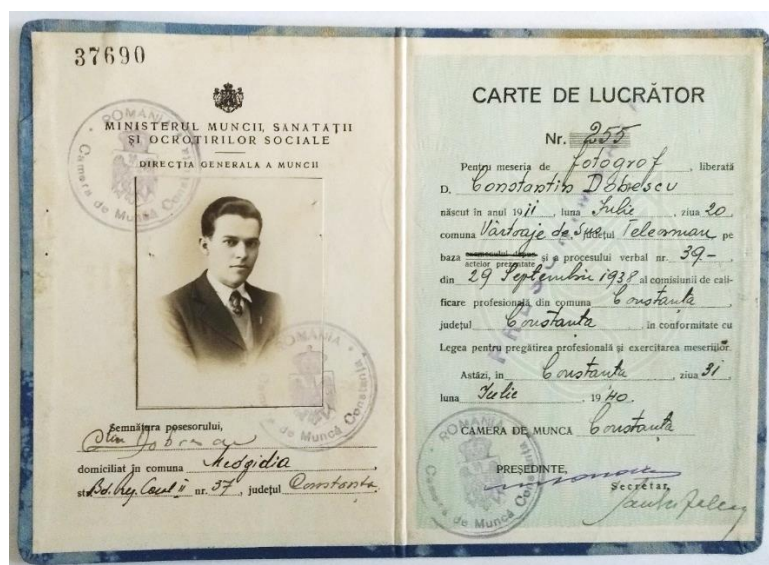 37690
MINISTERUL MUNCII, SANATATII
ȘI OCROTIRILOR SOCIALE
DIRECȚIA GENERALA A MUNCII
ROMANIA
Camera de Muncă Constanța
ROMANIA
de Muncă Constanța
Semnătura posesorului,
domiciliat în comuna Medgidia,
str Bd. Reg. Carol II nr. 37, județul Constanta.
CARTE DE LUCRĂTOR
Nr. 255
Pentru meseria de fotograf, liberată
D. Constantin Dobrescu
născut în anul 1911, luna Iulie, ziua 20,
comuna Vârtoaje de Sus județul Teleorman, pe
baza examenului depus și a procesului verbal nr. 39.-
actelor prezentate
din 29 Septembrie 1938 al comisiunii de cali-
ficare profesională, din comuna Constanta,
județul Constanta, în conformitate cu
Legea pentru pregătirea profesională și exercitarea meseriilor.
Astăzi, în Constanta, ziua 31,
luna Iulie, 1940.
CAMERA DE MUNCĂ Constanta
PREȘEDINTE,
Secretar,
ROMANIA
Camera de Muncă